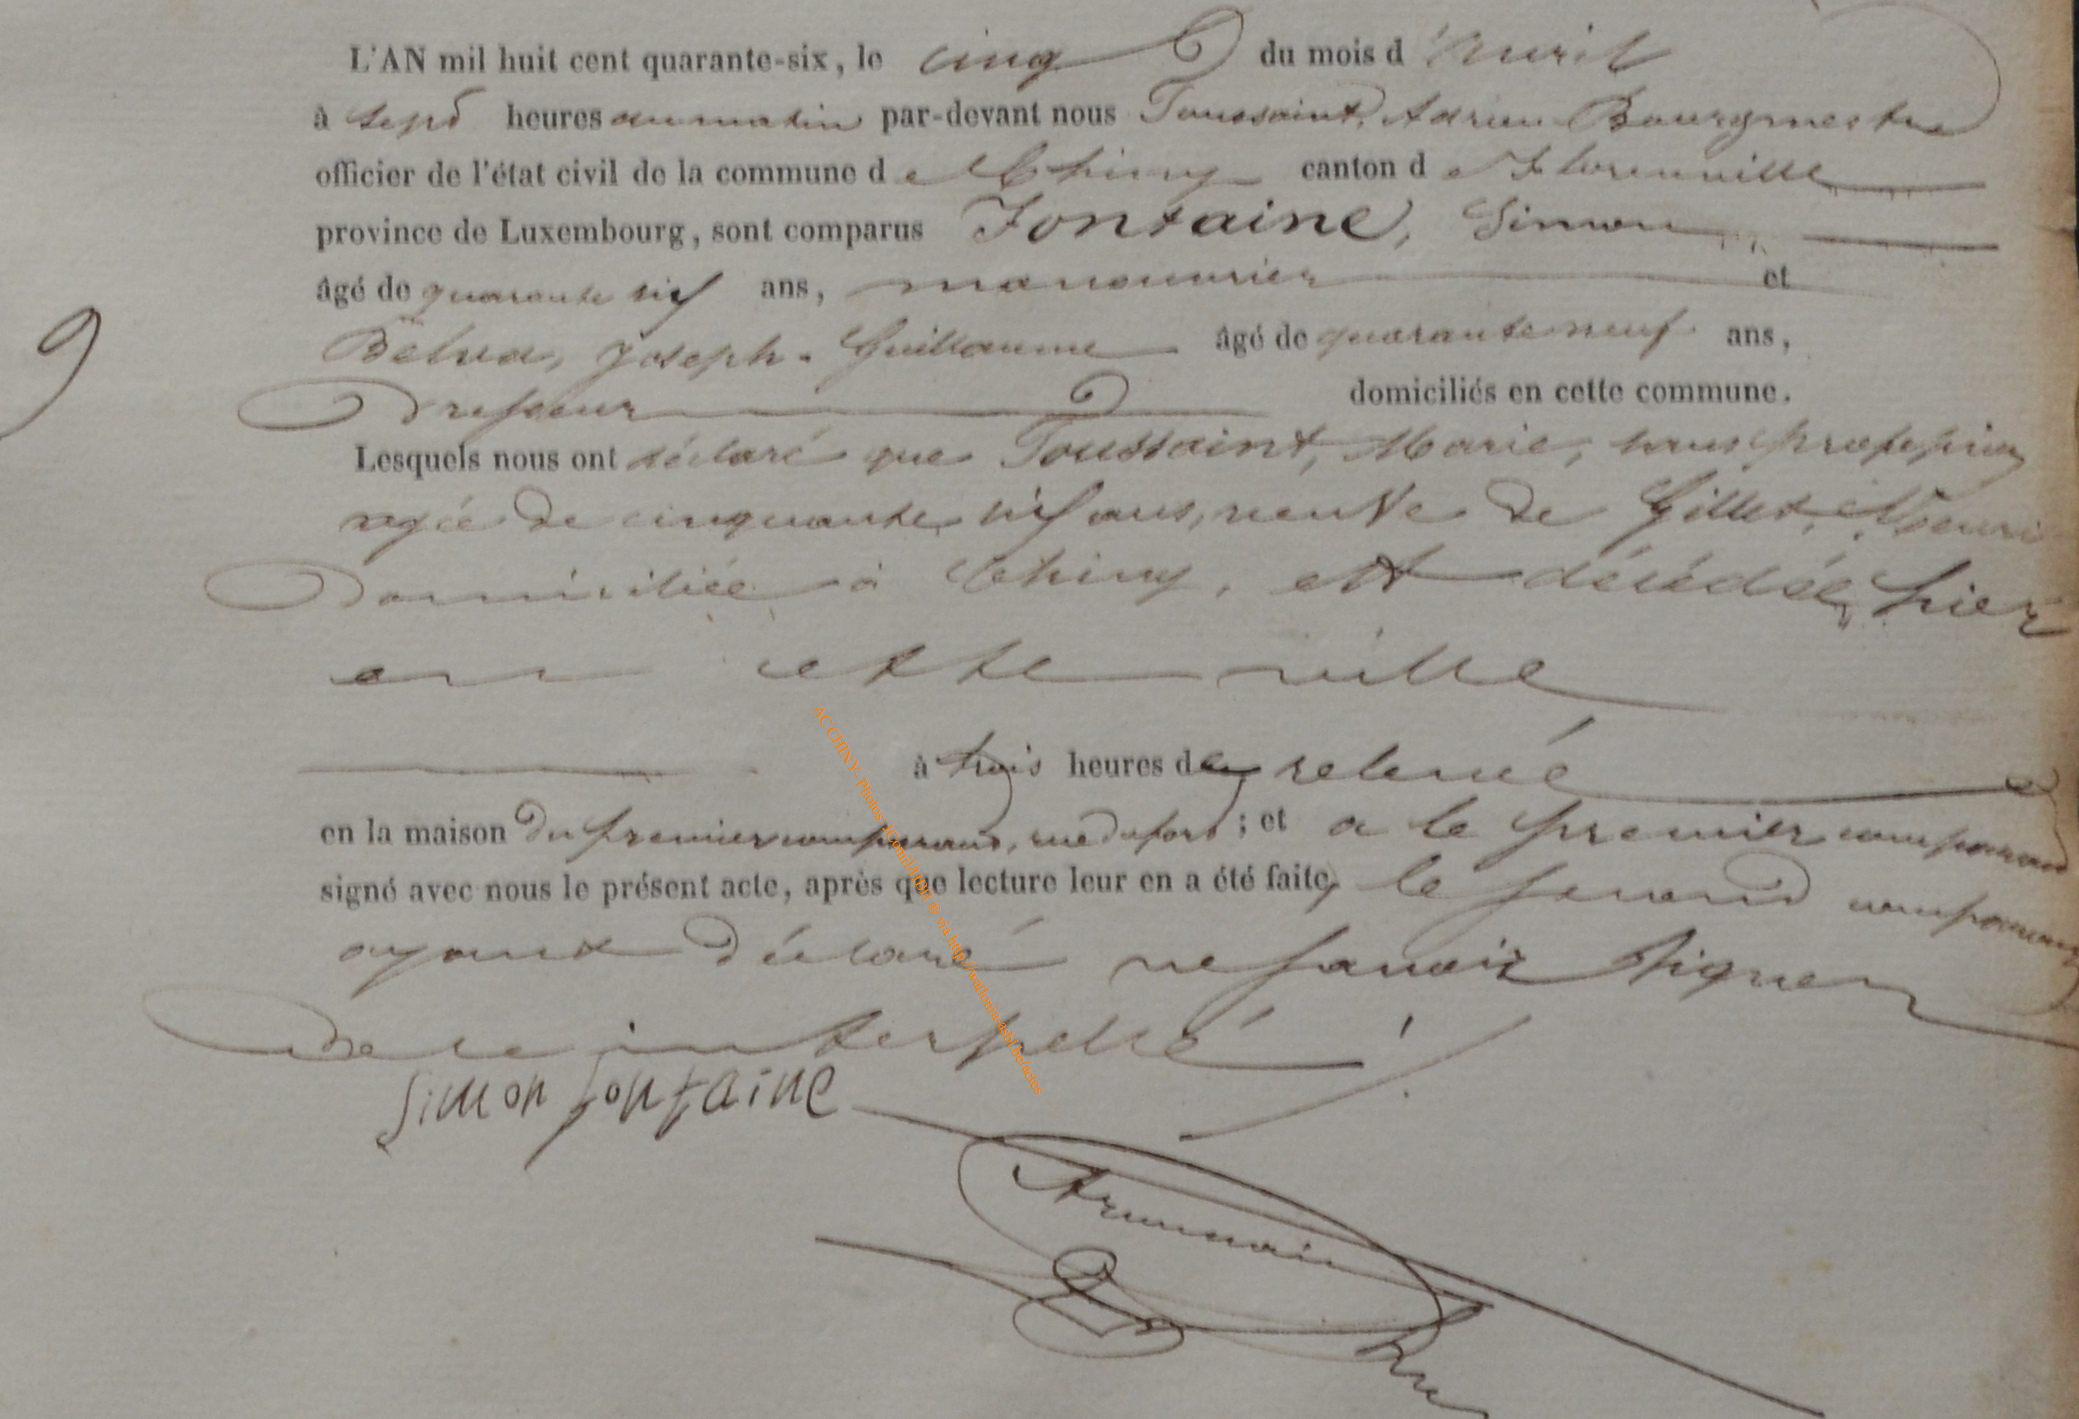 L'AN mil huit cent quarante-six, le cinq du mois d'Avril
à sept heures du matin par-devant nous Toussaint, Adrien Bourgmestre
officier de l'état civil de la commune de Chiny canton de Florenville
province de Luxembourg, sont comparus Fontaine, Simon
âgé de quarante six ans, manouvrier et
9
Joseph-Guillaume âgé de quarante neuf ans,
domiciliés en cette commune.
Lesquels nous ont déclaré que Toussaint, Marie, sans profession
agée de cinquante six ans, veuve de Gillet, Henri
Domiciliée à Chiny, est décédée, hier
en cette ville
à trois heures de relevée
en la maison du premier comparant, rue du fort; et a le premier comparant
signé avec nous le présent acte, après que lecture leur en a été faite, le second comparant
ayant déclaré ne savoir signer
De ce interpellé
Simon fontaine